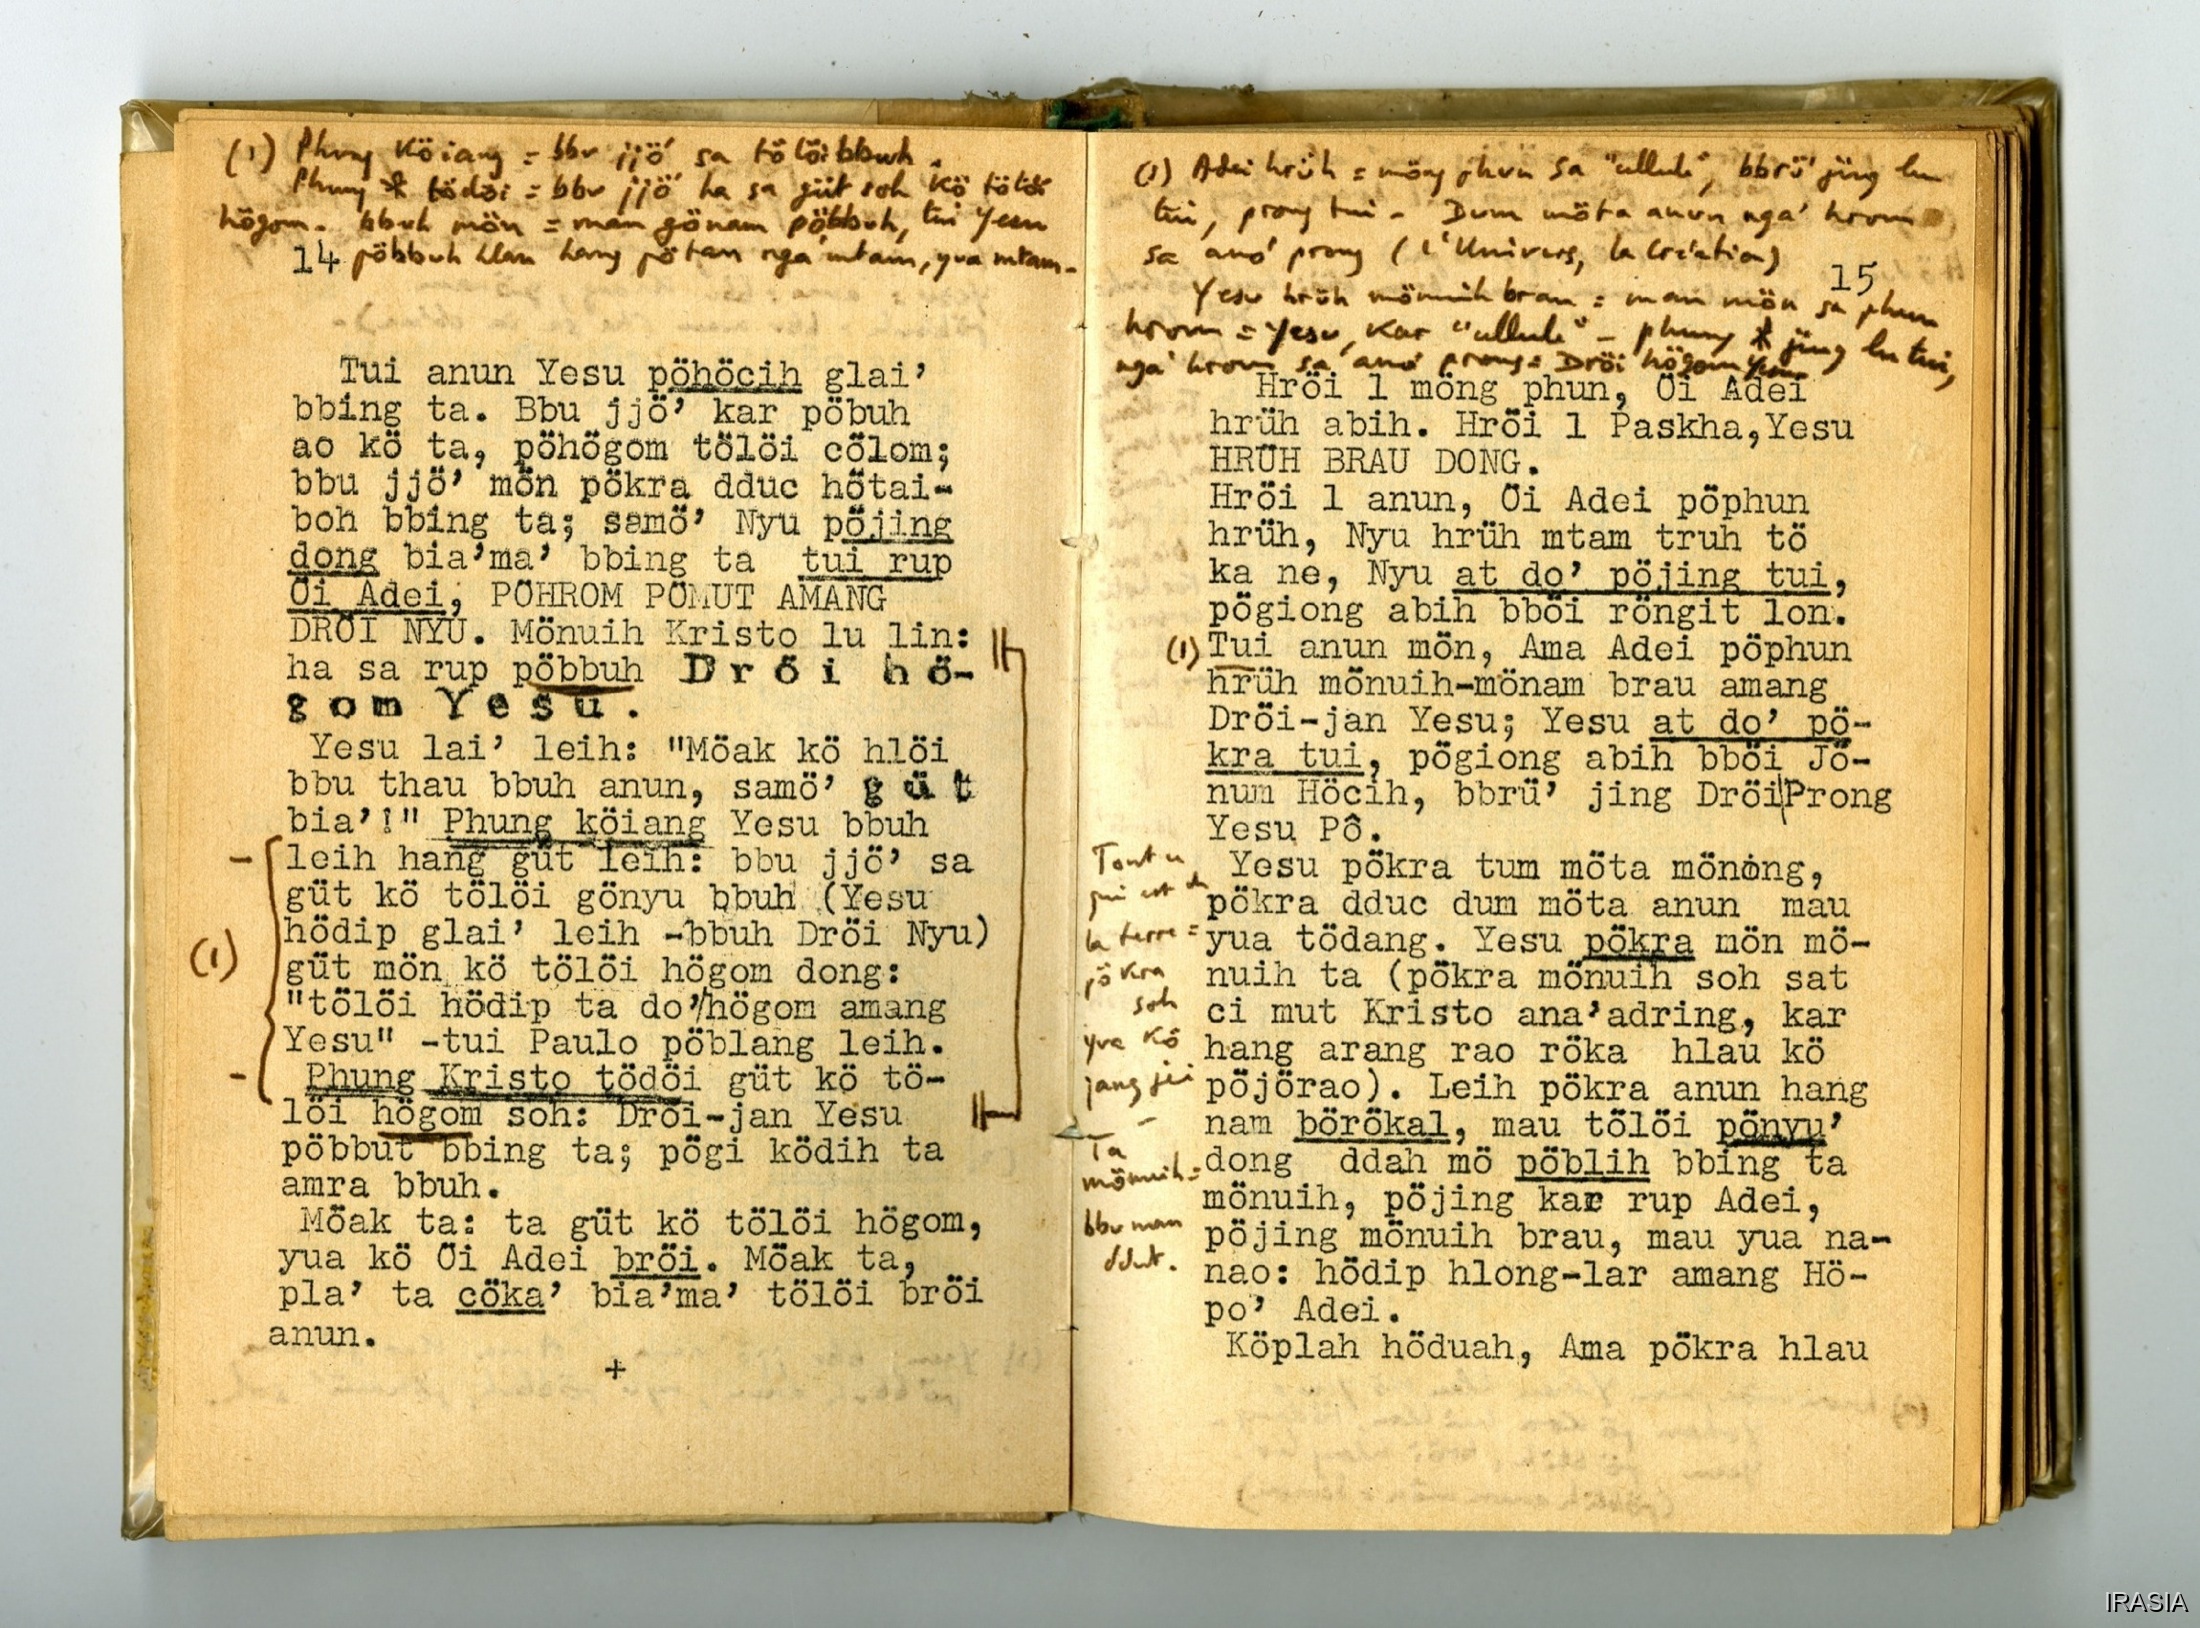 (1) Phung Köiang = bbu jjö' sa tölöi bbuh.
Phung * tödöi = bbu jjö' ha sa güt soh kö tölöi
högom. bbuh mön = man gönam pöbbuh, tui Yesu
14 pöbbuh hlau hang pötan nga' mtam, yua mtam.
Tui anun Yesu pöhöcih glai’
bbing ta. Bbu jjö’ kar pöbuh
ao kö ta, pöhögom tölöi cölom;
bbu jjö’ mön pökra dduc hötai-
boh bbing ta; samö’ Nyu pöjing
dong bia’ma’ bbing ta tui rup
Öi Adei, PÖHROM PÖMUT AMANG
DRÖI NYU. Mönuih Kristo lu lin:
ha sa rup pöbbuh Dröi hö-
gom Yesu.
Yesu lai’ leih: "Möak kö hlöi
bbu thau bbuh anun, samö’ güt
bia’!" Phung köiang Yesu bbuh
leih hang güt leih: bbu jjö’ sa
güt kö tölöi gönyu bbuh (Yesu
hödip glai’ leih -bbuh Dröi Nyu)
(1) güt mön kö tölöi högom dong:
"tölöi hödip ta do’/högom amang
Yesu" -tui Paulo pöblang leih.
Phung Kristo tödöi güt kö tö-
löi högom soh: Dröi-jan Yesu
pöbbut bbing ta; pögi ködih ta
amra bbuh.
Möak ta: ta güt kö tölöi högom,
yua kö Öi Adei bröi. Möak ta,
pla’ ta cöka’ bia’ma’ tölöi bröi
anun.
+
(1) Adei hrüh = möng phun sa "ullule", bbrü' jing lu
tui, prong tui - Dum möta anun nga' hrom
sa anö' prong (l'Univers, la Création)
15
Yesu hrüh mönuih brau = man mön sa phun
hrom = Yesu, kar "ullule" - phung * jing lu tui,
nga' hrom sa anö' prong = Dröi högom Yesu
Hröi 1 möng phun, Öi Adei
hrüh abih. Hröi 1 Paskha,Yesu
HRÜH BRAU DONG.
Hröi 1 anun, Öi Adei pöphun
hrüh, Nyu hrüh mtam truh tö
ka ne, Nyu at do’ pöjing tui,
pögiong abih bböi röngit lon.
(1) Tui anun mön, Ama Adei pöphun
hrüh mönuih-mönam brau amang
Dröi-jan Yesu; Yesu at do’ pö-
kra tui, pögiong abih bböi Jö-
num Höcih, bbrü’ jing Dröi|Prong
Yesu Pô.
Yesu pökra tum möta mönong,
pökra dduc dum möta anun mau
yua tödang. Yesu pökra mön mö-
nuih ta (pökra mönuih soh sat
ci mut Kristo ana’adring, kar
hang arang rao röka hlau kö
pöjörao). Leih pökra anun hang
nam börökal, mau tölöi pönyu’
dong ddah mö pöblih bbing ta
mönuih, pöjing kar rup Adei,
pöjing mönuih brau, mau yua na-
nao: hödip hlong-lar amang Hö-
po’ Adei.
Köplah höduah, Ama pökra hlau
Tout
qui est
la terre =
pökra
soh
yua kö
jang jei
-
Ta
mönuih =
bbu man
ddut.
IRASIA